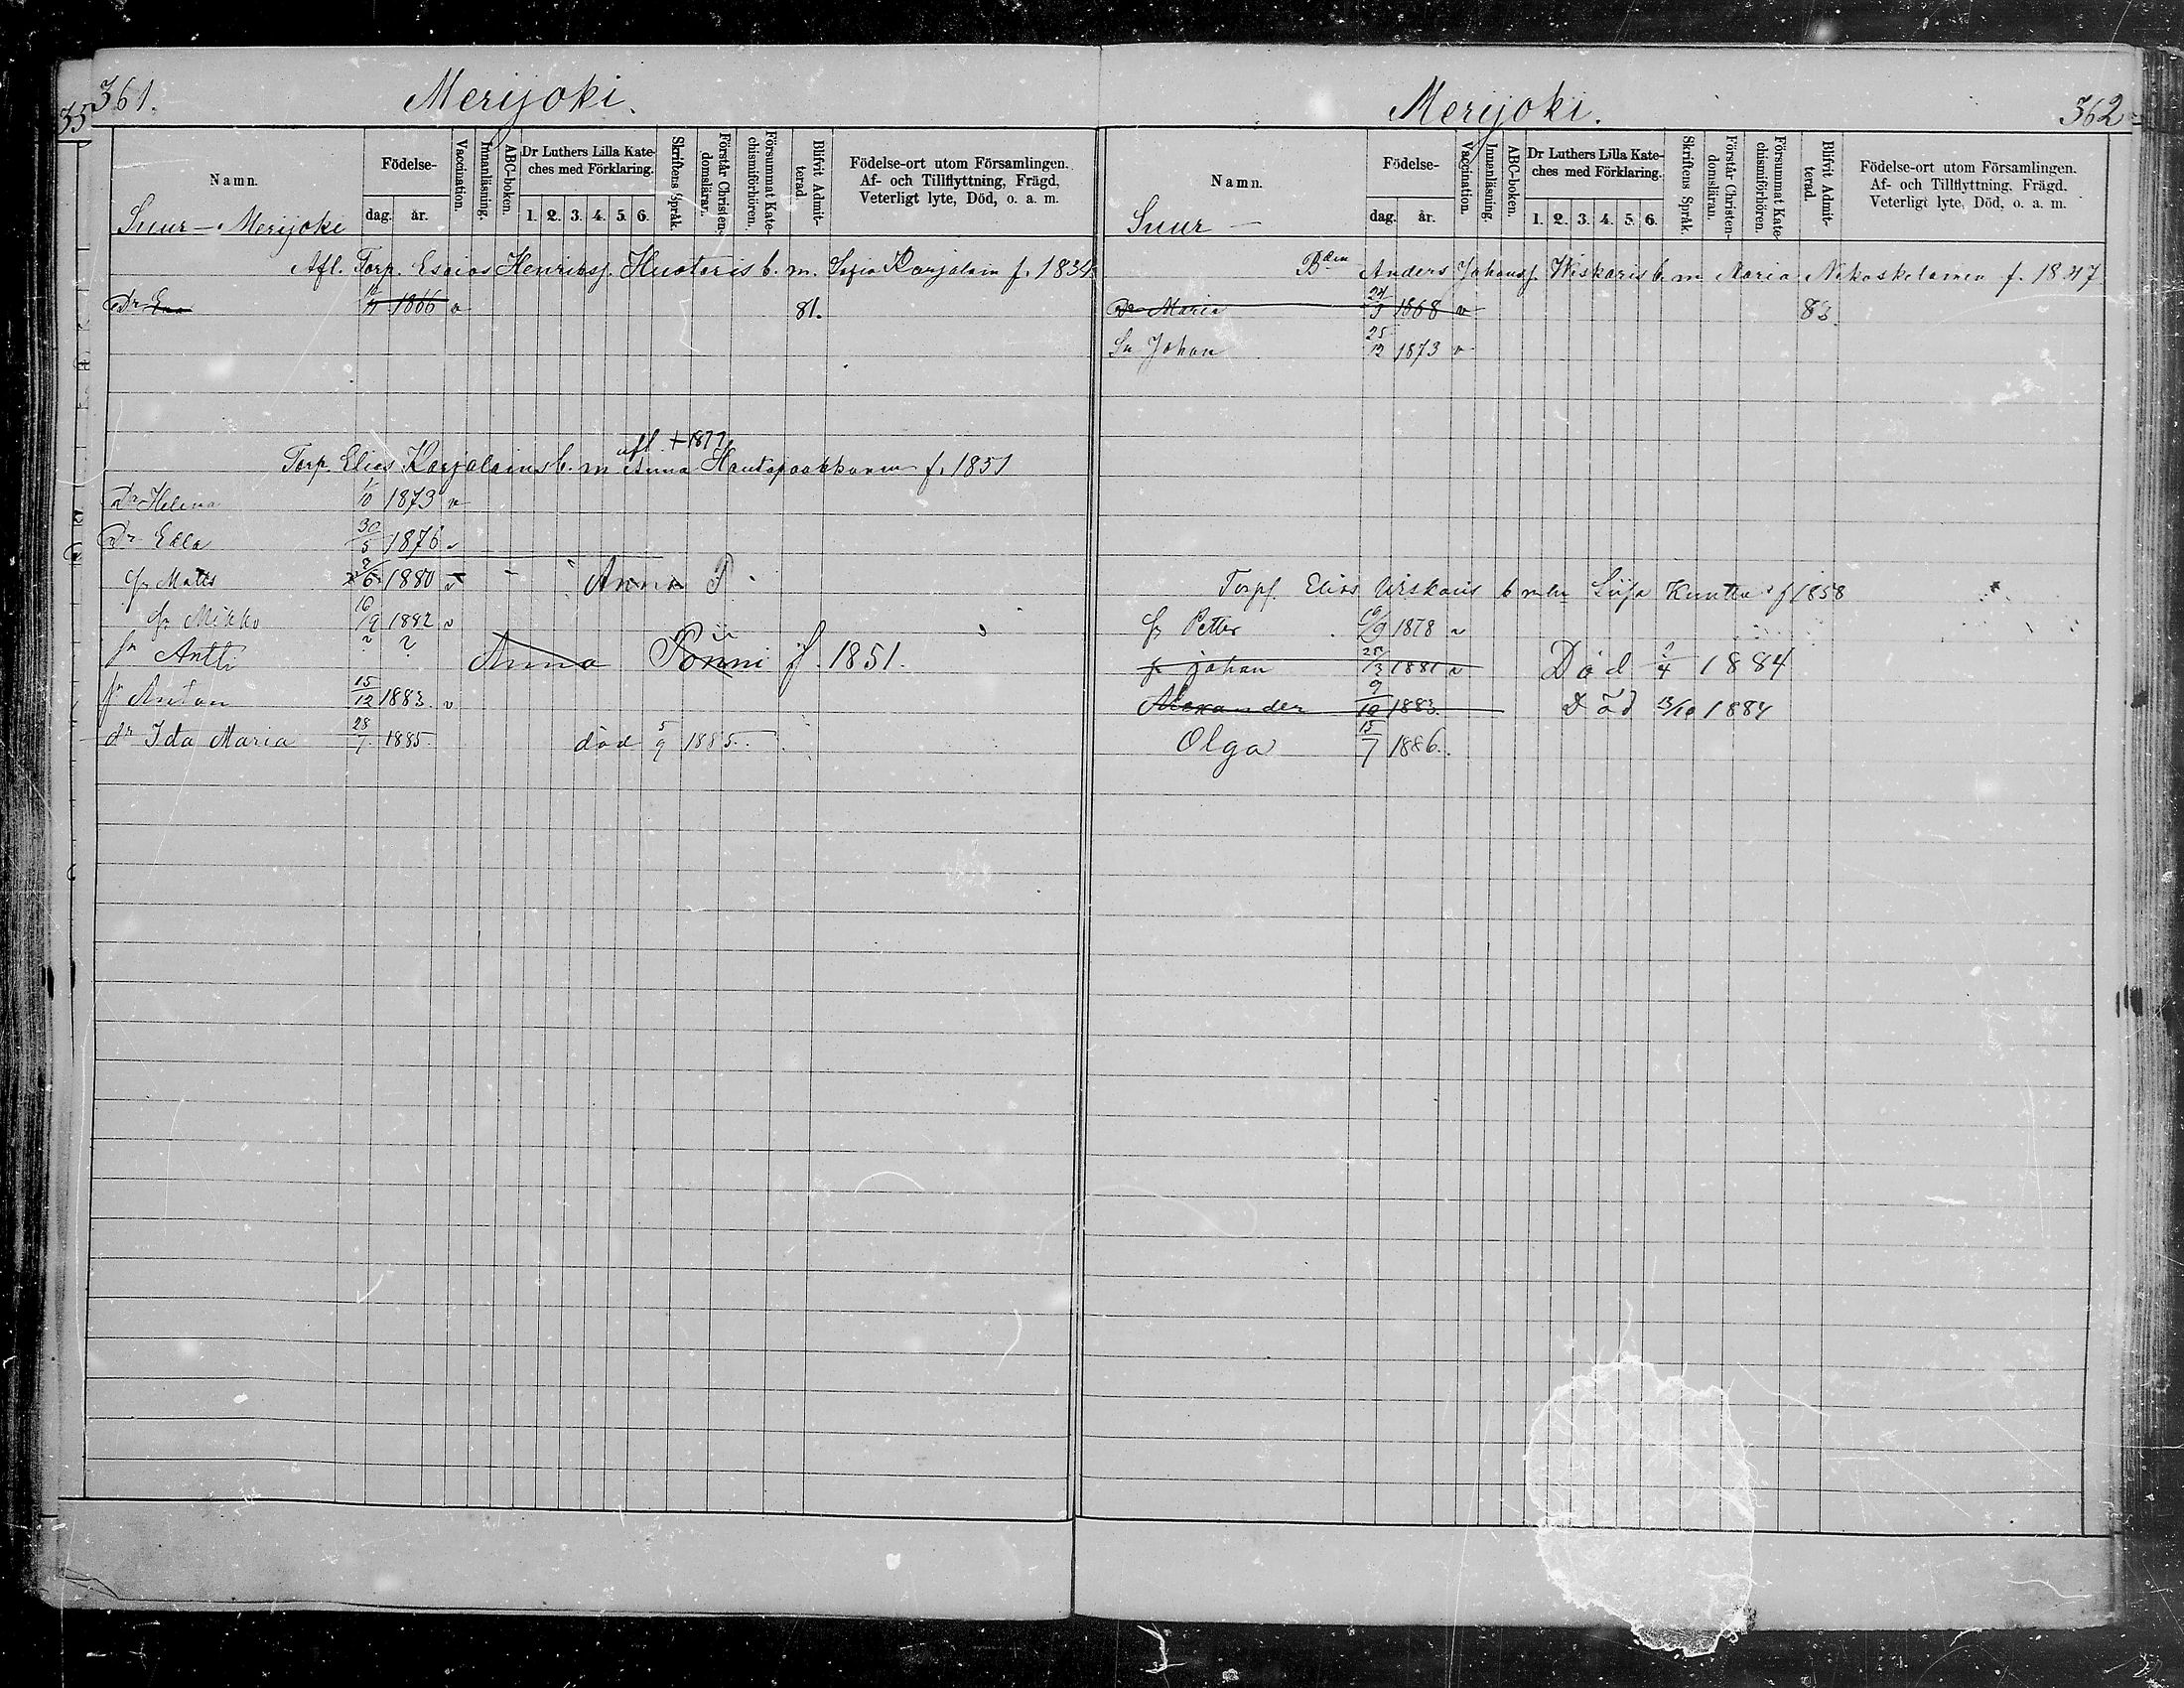 361.
Merijoki.
35
Namn.
Födelse-
dag.
år.
Vaccination.
Innanläsning.
ABC-boken.
Dr Luthers Lilla Kate-
ches med Förklaring.
1. 2. 3. 4. 5. 6.
Skriftens Språk.
Förstår Christen-
domsläran.
Försummat Kate-
chismiförhören.
Blifvit Admit-
terad.
Födelse-ort utom Församlingen.
Af- och Tillflyttning, Frägd,
Veterligt lyte, Död, o. a. m.
Suur - Merijoki
Afl. Torp. Esaias Henrikss. Huotaris b. m. Sofia Karjalain f. 1834
Dr Eva 1866 v 81.
afl. + 1877
Torp. Elias Karjalains b. m Anna Hautapaakkanen f. 1851
Dr Helena 1/10 1873 v
Dr Edla 30/5 1876 v
Sn Matts 1880 v Anna P
Sn Mikko 1882 v
Sn Antti ? ? Anna f. 1851.
Sn Anton 15/12 1883. v
dr Ida Maria 28/7 1885. död 5/9 1885.
Merijoki.
362
Namn.
Födelse-
dag.
år.
Vaccination.
Innanläsning.
ABC-boken.
Dr Luthers Lilla Kate-
ches med Förklaring.
1. 2. 3. 4. 5. 6.
Skriftens Språk.
Förstår Christen-
domsläran.
Försummat Kate-
chismiförhören.
Blifvit Admit-
terad.
Födelse-ort utom Församlingen.
Af- och Tillflyttning, Frägd.
Veterligt lyte, Död, o. a. m.
Suur -
Bden Anders Johanss. Wiskaris b m Maria f. 1847
Dr Maria 24/3 1868 v 83.
Sn Johan 25/12 1873 v
Torp. Elias Wiskaris b m f 1858
Sn Petter 1878 v
Sn Johan 1881 v Död 1884
Alexander 9/10 1883. Död 13/10 1884
Olga 15/7 1886.